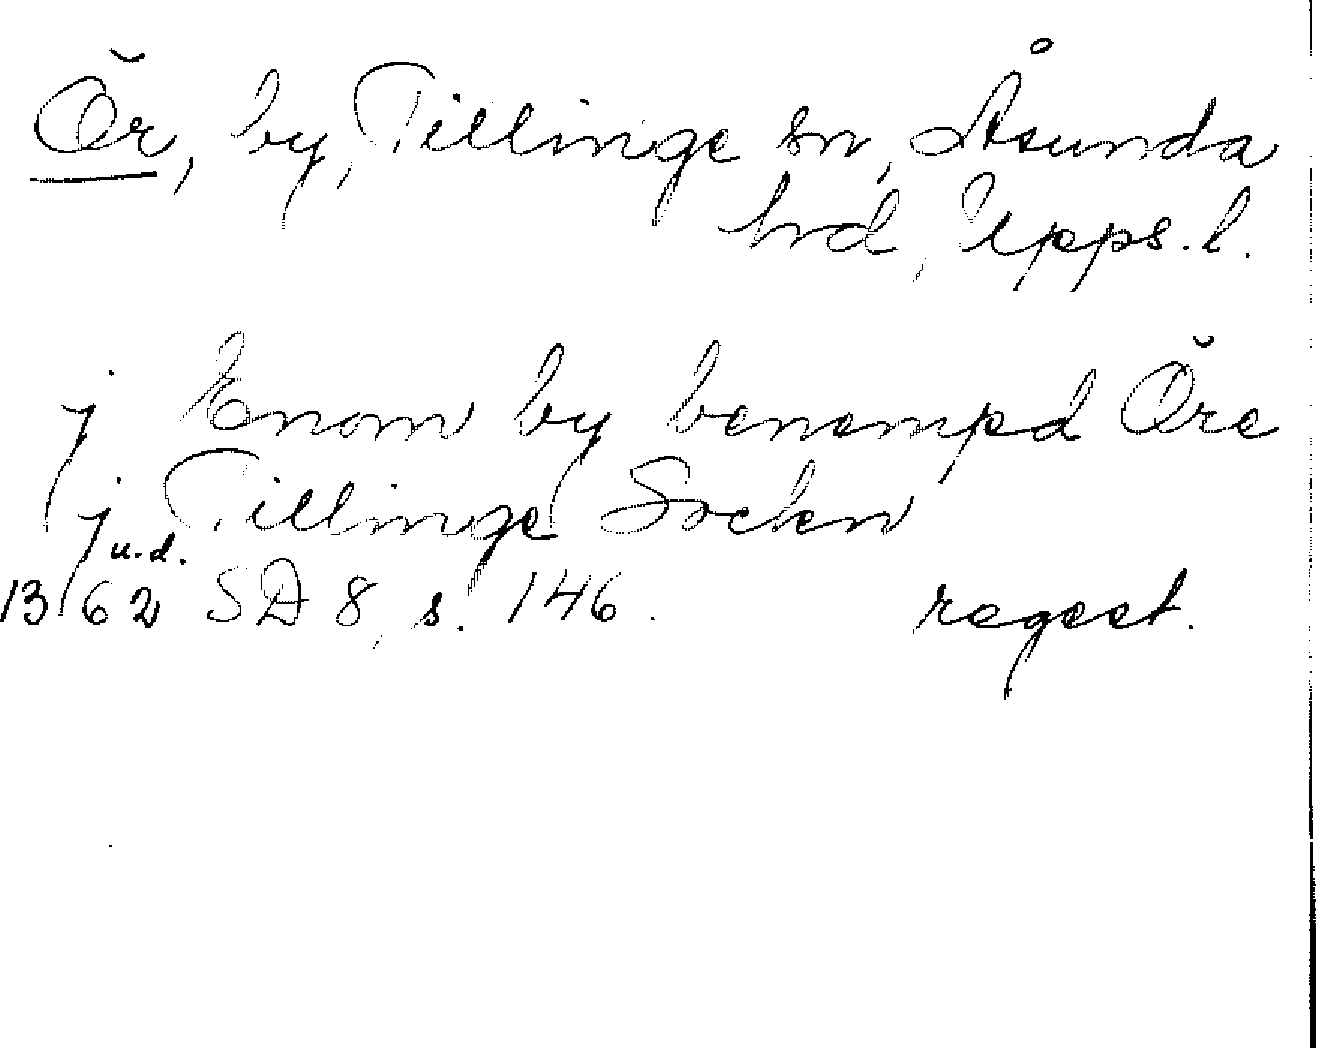 Ör, by, Tillinge sn, Åsunda
hrd, Upps. l.
j Enom by benempd Öre
j Tillinge Sockn
u.d.
1362 SD 8, s. 146. regest.